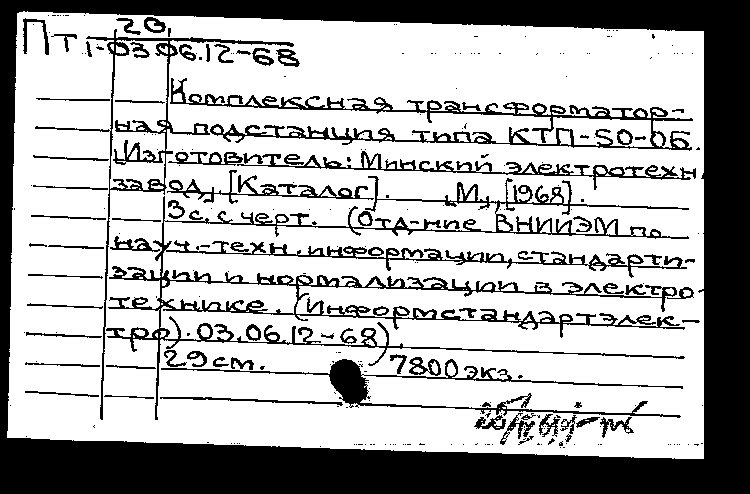 20
ПТ 1-03.06.12-68
Комплексная трансформатор-
ная подстанция типа КТП-50-06.
[Изготовитель: Минский электротехн.
завод]. [Каталог]. [М.], [1968].
3 с. с черт. (Отд-ние ВНИИЭМ по
науч.-техн. информации, стандарти-
зации и нормализации в электро-
технике. (Информстандартэлек-
тро). 03.06.12-68).
29 см. 7800 экз.